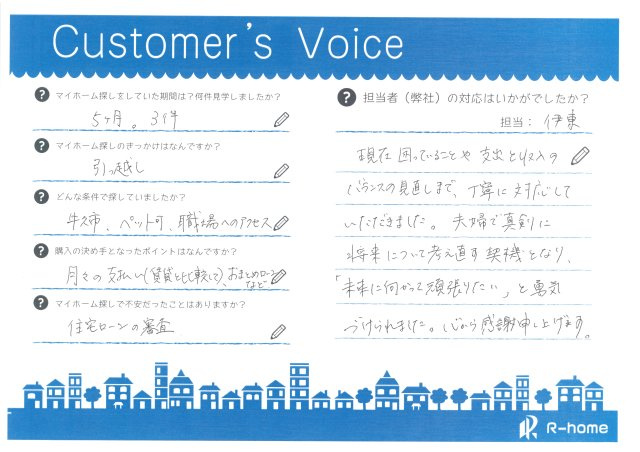 Customer's Voice
? マイホーム探しをしていた期間は?何件見学しましたか?
5ヶ月。3件
? マイホーム探しのきっかけはなんですか?
引っ越し
? どんな条件で探していましたか?
牛久市、ペット可、職場へのアクセス
? 購入の決め手となったポイントはなんですか?
月々の支払い(賃貸と比較して)、おまとめローン
など
? マイホーム探しで不安だったことはありますか?
住宅ローンの審査
? 担当者(弊社)の対応はいかがでしたか?
担当: 伊東
現在困っていることや支出と収入の
バランスの見直しまで、丁寧に対応して
いただきました。夫婦で真剣に
将来について考え直す契機となり、
「未来に向かって頑張りたい」と勇気
づけられました。心から感謝申し上げます。
R-home